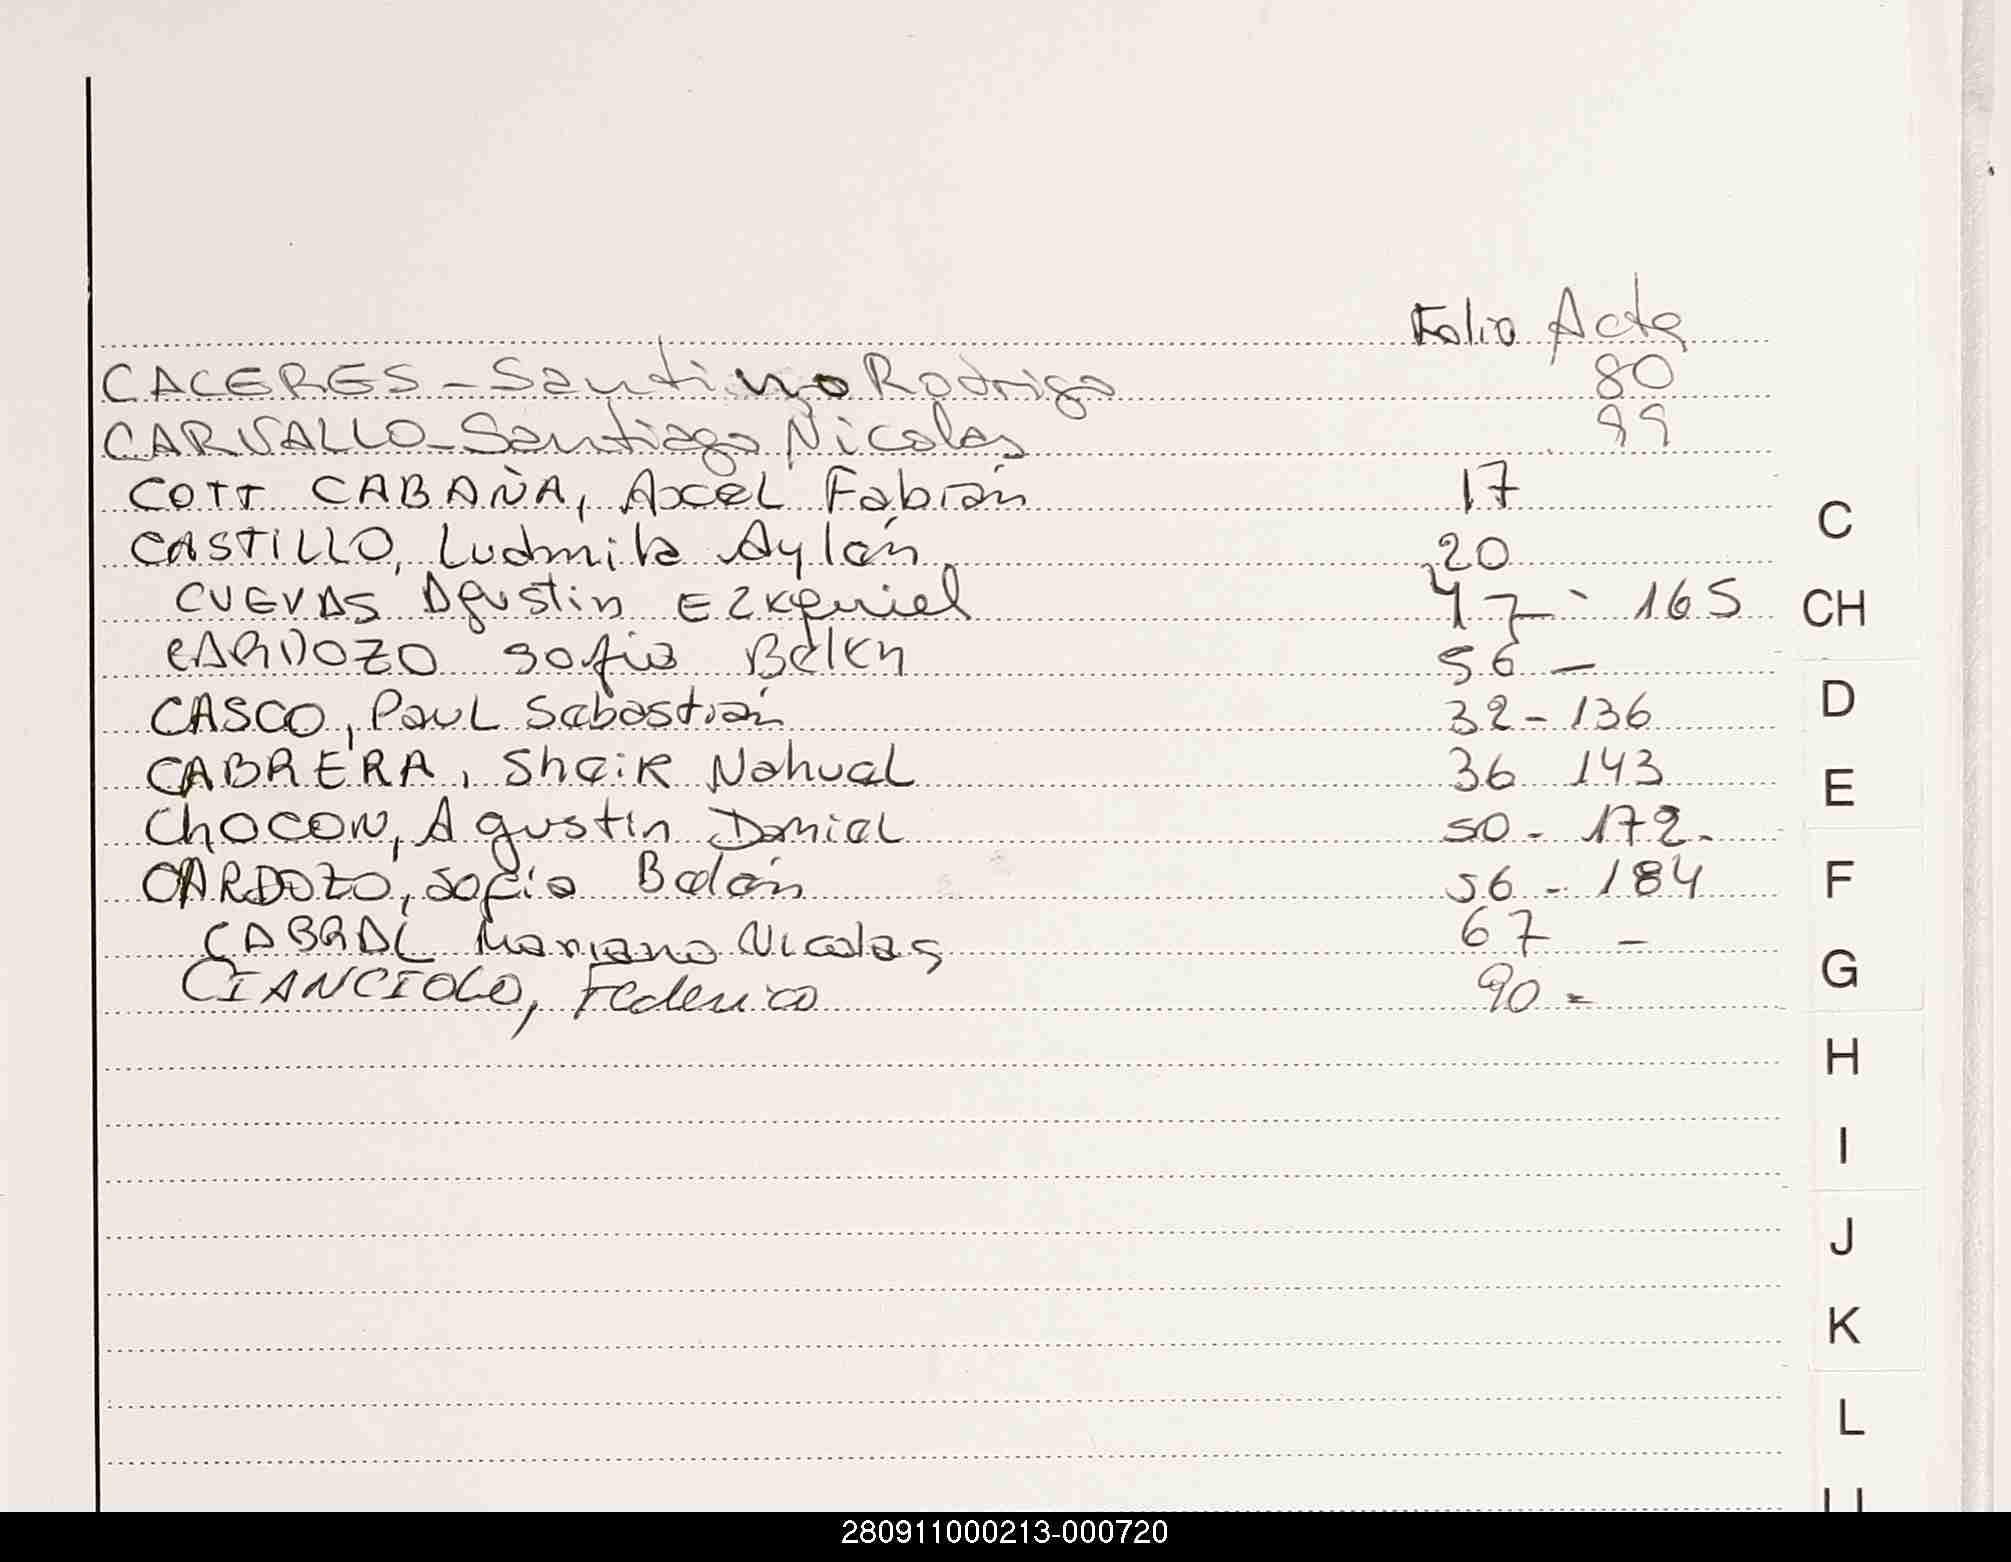 Folio Acta
CACERES - Santino Rodrigo 80
CARVALLO - Santiago Nicolas 99
COTT CABAÑA, Axcel Fabián 17
CASTILLO, Ludmila Aylén 20
CUEVAS Agustin EZKequiel 47 - 165
CARDOZO Sofia Belen 56 -
CASCO, Paul Sebastián 32 - 136
CABRERA, Sheik Nahuel 36 143
CHOCON, Agustin Daniel 50 - 172 -
CARDOZO, Sofia Belén 56 - 184
CABRAL Mariano Nicolas 67 -
CIANCIOLO, Federico 90 =
C
CH
D
E
F
G
H
I
J
K
L
280911000213-000720